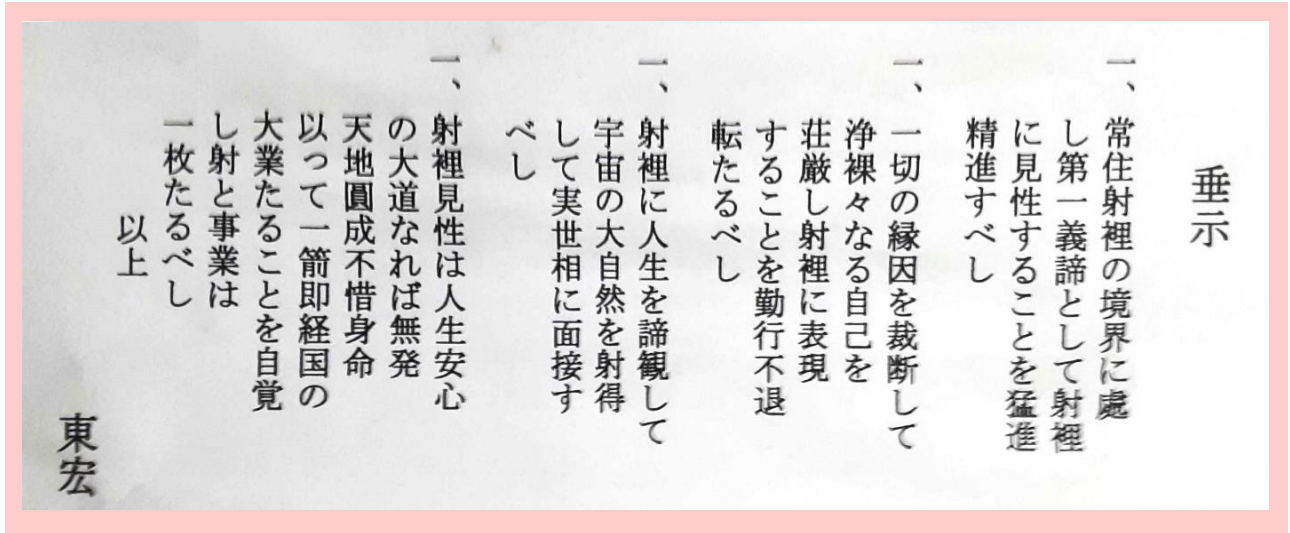 垂示
一、常住射裡の境界に處
し第一義諦として射裡
に見性することを猛進
精進すべし
一、一切の縁因を裁断して
浄裸々なる自己を
荘厳し射裡に表現
することを勤行不退
転たるべし
一、射裡に人生を諦観して
宇宙の大自然を射得
して実世相に面接す
べし
一、射裡見性は人生安心
の大道なれば無発
天地圓成不惜身命
以って一箭即経国の
大業たることを自覚
し射と事業は
一枚たるべし
以上
東宏